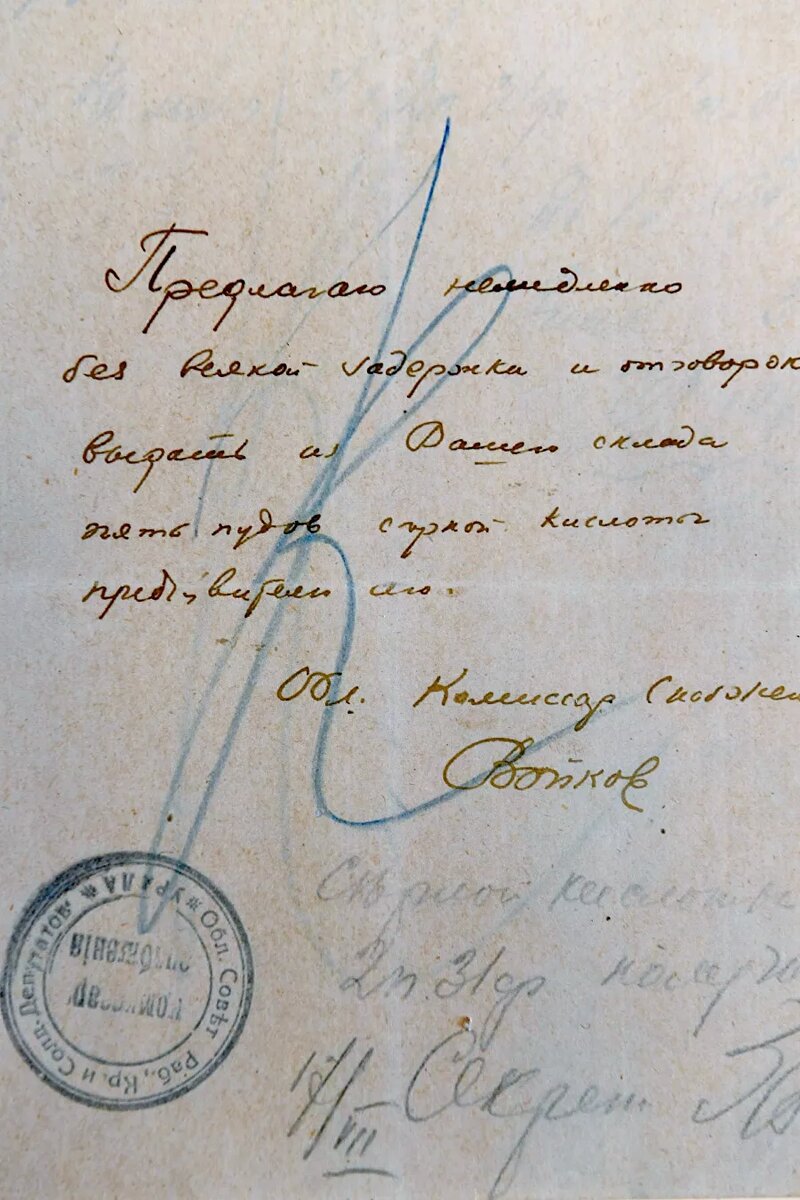 Предлагаю немедленно
без всякой задержки и отговорок
выдать из Вашего склада
пять пудов серной кислоты
предъявителю сего.
Обл. Комиссар Снабжен
Войков
Серной кислоты
2п. 31ф получ
17/VII Секрет.
Обл. Совѣт Раб., Кр. и Солд. Депутатов УРАЛА
комиссар
снабженія